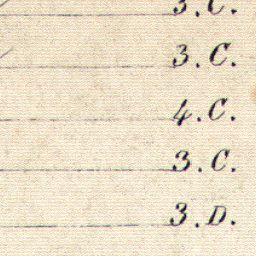 3. C.
3. C.
4. C.
3. C.
3. D.